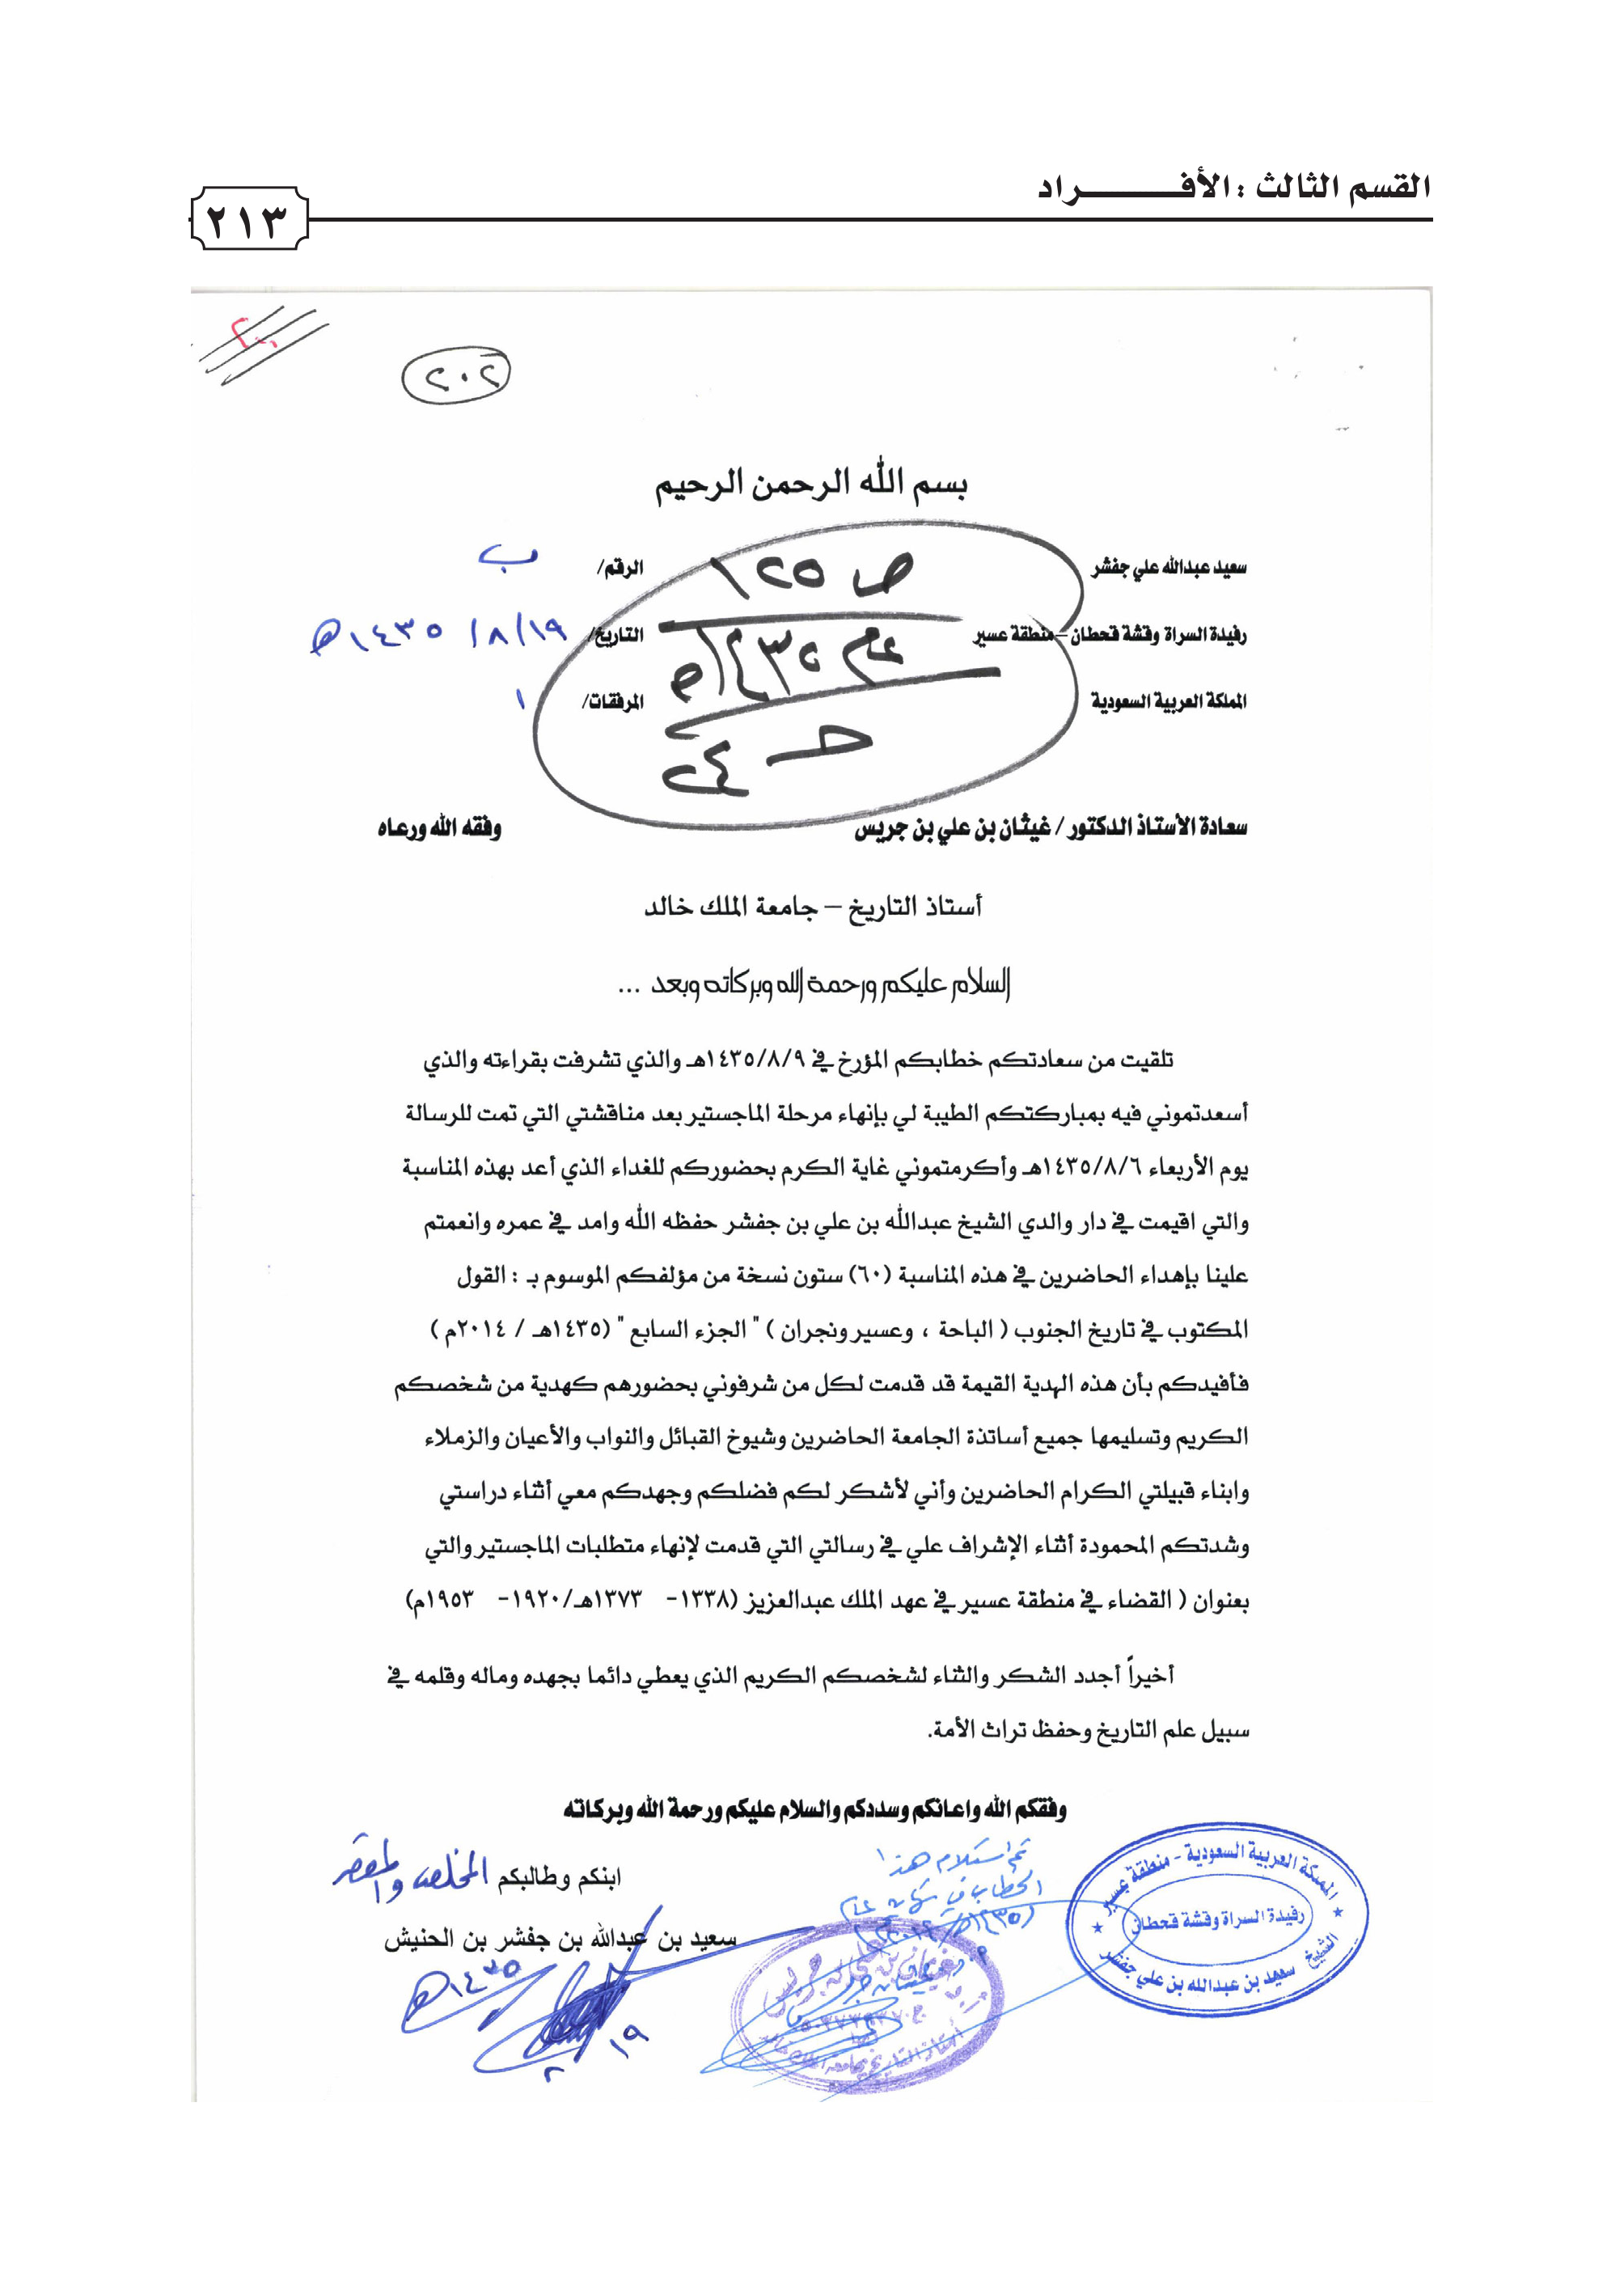 القسم الثالث : الأفــــــــراد
٢١٣
٢٠٢
بسم الله الرحمن الرحيم
سعيد عبدالله علي جفشر
الرقم/ ب
ص ١٢٥
رفيدة السراة وقشة قحطان – منطقة عسير
التاريخ/ ١٩/ ٨/ ١٤٣٥هـ
عام ١٤٣٥هـ
المملكة العربية السعودية
المرفقات/ ١
حـ ٢٤
سعادة الأستاذ الدكتور / غيثان بن علي بن جريس
وفقه الله ورعاه
أستاذ التاريخ – جامعة الملك خالد
السلام عليكم ورحمة الله وبركاته وبعد ...
تلقيت من سعادتكم خطابكم المؤرخ في ١٤٣٥/٨/٩هـ والذي تشرفت بقراءته والذي
أسعدتموني فيه بمباركتكم الطيبة لي بإنهاء مرحلة الماجستير بعد مناقشتي التي تمت للرسالة
يوم الأربعاء ١٤٣٥/٨/٦هـ وأكرمتموني غاية الكرم بحضوركم للغداء الذي أعد بهذه المناسبة
والتي اقيمت في دار والدي الشيخ عبدالله بن علي بن جفشر حفظه الله وامد في عمره وانعمتم
علينا بإهداء الحاضرين في هذه المناسبة (٦٠) ستون نسخة من مؤلفكم الموسوم بـ : القول
المكتوب في تاريخ الجنوب ( الباحة ، وعسير ونجران ) " الجزء السابع " (١٤٣٥هـ / ٢٠١٤م )
فأفيدكم بأن هذه الهدية القيمة قد قدمت لكل من شرفوني بحضورهم كهدية من شخصكم
الكريم وتسليمها جميع أساتذة الجامعة الحاضرين وشيوخ القبائل والنواب والأعيان والزملاء
وابناء قبيلتي الكرام الحاضرين وأني لأشكر لكم فضلكم وجهدكم معي أثناء دراستي
وشدتكم المحمودة أثناء الإشراف علي في رسالتي التي قدمت لإنهاء متطلبات الماجستير والتي
بعنوان ( القضاء في منطقة عسير في عهد الملك عبدالعزيز (١٣٣٨- ١٣٧٣هـ/١٩٢٠- ١٩٥٣م)
أخيراً أجدد الشكر والثناء لشخصكم الكريم الذي يعطي دائما بجهده وماله وقلمه في
سبيل علم التاريخ وحفظ تراث الأمة.
وفقكم الله واعانكم وسددكم والسلام عليكم ورحمة الله وبركاته
ابنكم وطالبكم المخلص
سعيد بن عبدالله بن جفشر بن الحنيش
١٤٣٥هـ
١٩
تم استلام هذا
الخطاب في
المملكة العربية السعودية - منطقة عسير
رفيدة السراة وقشة قحطان
الشيخ سعيد بن عبدالله بن علي جفشر